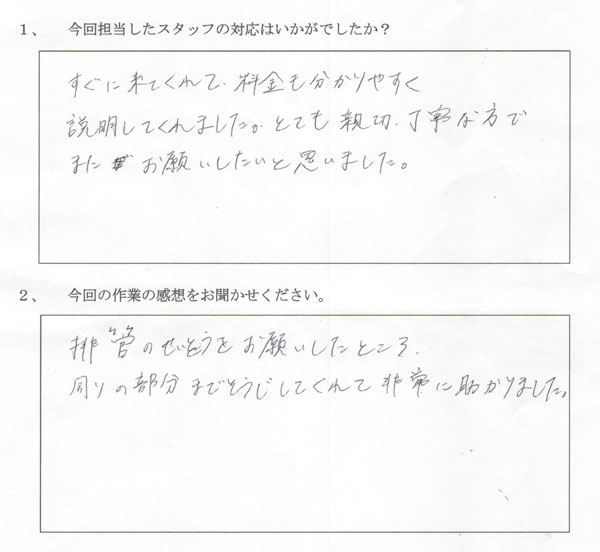 1、 今回担当したスタッフの対応はいかがでしたか？
すぐに来てくれて、料金も分かりやすく
説明してくれました。とても親切、丁寧な方で
また お願いしたいと思いました。
2、 今回の作業の感想をお聞かせください。
排管のせいそうをお願いしたところ、
周りの部分までそうじしてくれて非常に助かりました。